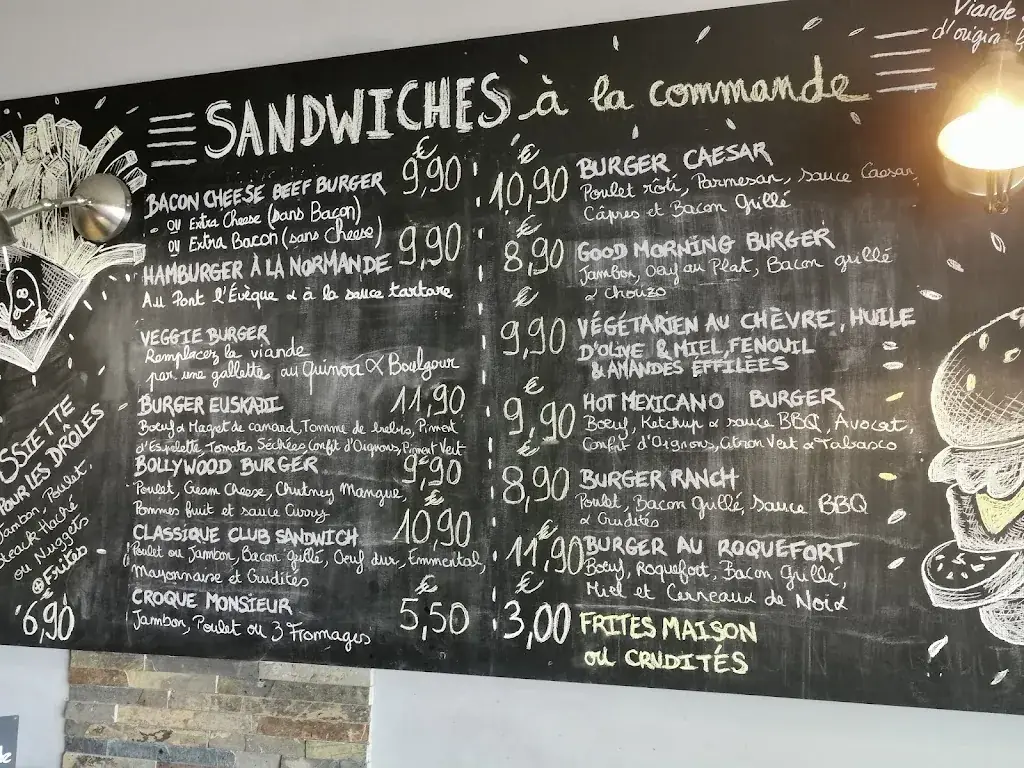 Viande
d'origin
SANDWICHES à la commande
€
BACON CHEESE BEEF BURGER 9,90
- ou Extra Cheese (sans Bacon)
ou Extra Bacon (sans cheese)
HAMBURGER À LA NORMANDE 9,90
Au Pont l'Évêque & à la sauce tartare
VEGGIE BURGER
Remplacez la viande
par une gallette au Quinoa & Boulgour
BURGER EUSKADI 11,90
Boeuf & Magret de canard, Tomme de brebis, Piment
d'Espelette, Tomates Séchées, confit d'Oignons, Piment Vert
BOLLYWOOD BURGER 9,90
Poulet, Cream Cheese, Chutney Mangue,
Pommes fruit et sauce Curry
€
CLASSIQUE CLUB SANDWICH 10,90
Poulet ou Jambon, Bacon Grillé, Oeuf dur, Emmental,
Mayonnaise et Crudités
€
CROQUE MONSIEUR 5,50
Jambon, Poulet ou 3 Fromages
€
10,90 BURGER CAESAR
Poulet rôti, Parmesan, sauce Caesar,
Câpres et Bacon Grillé
€
8,90 GOOD MORNING BURGER
Jambon, Oeuf au Plat, Bacon grillé
& chorizo
€
9,90 VÉGÉTARIEN AU CHÈVRE, HUILE
D'OLIVE & MIEL, FENOUIL
& AMANDES EFFILÉES
€
9,90 HOT MEXICANO BURGER
Boeuf, Ketchup & sauce BBQ, Avocat,
Confit d'Oignons, Citron Vert & Tabasco
8,90 BURGER RANCH
Poulet, Bacon Grillé, Sauce BBQ
& Crudités
€
11,90 BURGER AU ROQUEFORT
Boeuf, Roquefort, Bacon Grillé,
Miel et Cerneaux de Noix
€
3,00 FRITES MAISON
ou CRUDITÉS
SSIETTE
POUR LES DRÔLES
Jambon, Poulet,
Steak Haché
ou Nuggets
⊕ Frites
6,90